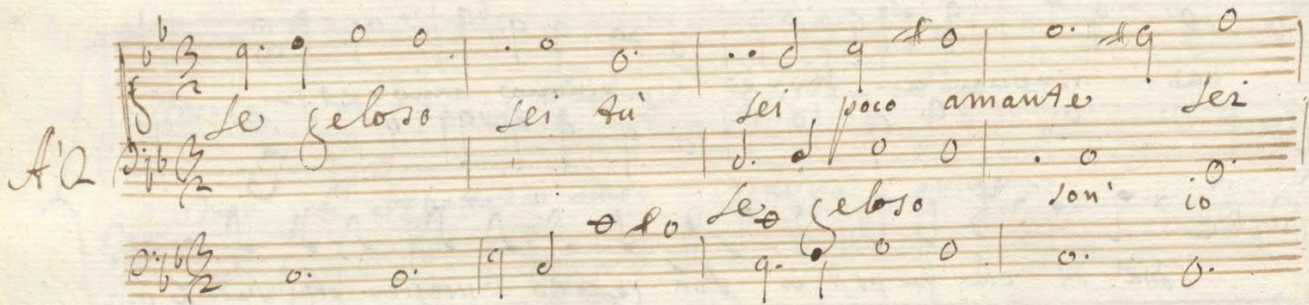 Se geloso sei tù sei poco amante sei
A'2
Se geloso son' io